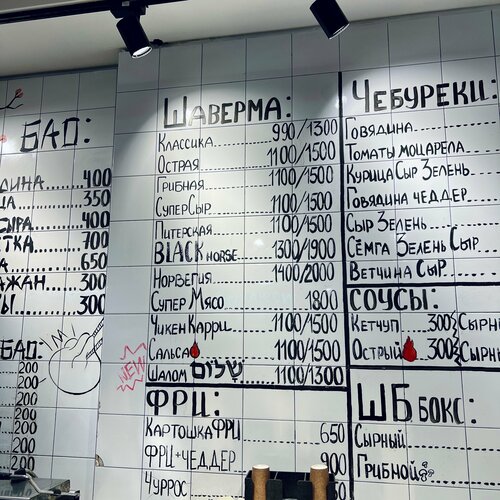 БАО:
400
350
СЫРА.......400
700
650
300
300
БАО:
200
200
200
200
200
200
200
ШАВЕРМА:
КЛАССИКА 990/1300
ОСТРАЯ 1100/1500
ГРИБНАЯ 1100/1500
СУПЕР СЫР 1100/1500
ПИТЕРСКАЯ 1100/1500
BLACK HORSE 1300/1900
НОРВЕГИЯ 1400/2000
СУПЕР МЯСО 1800
ЧИКЕН КАРРИ 1100/1500
САЛЬСА 1100/1500
NEW!
ШАЛОМ שלום 1100/1300
ФРИ:
КАРТОШКА ФРИ 650
ФРИ+ЧЕДДЕР 900
ЧУРРОС
ЧЕБУРЕКИ:
ГОВЯДИНА
ТОМАТЫ МОЦАРЕЛА
КУРИЦА СЫР ЗЕЛЕНЬ
ГОВЯДИНА ЧЕДДЕР
СЫР ЗЕЛЕНЬ
СЁМГА ЗЕЛЕНЬ СЫР
ВЕТЧИНА СЫР
СОУСЫ:
КЕТЧУП 300 СЫРНЫ
ОСТРЫЙ 300 СЫРНЫ
ШБ БОКС:
СЫРНЫЙ
ГРИБНОЙ